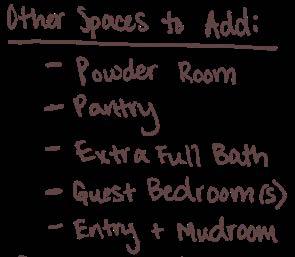 Other Spaces to Add:
- Powder Room
- Pantry
- Extra Full Bath
- Guest Bedroom(s)
- Entry + Mudroom